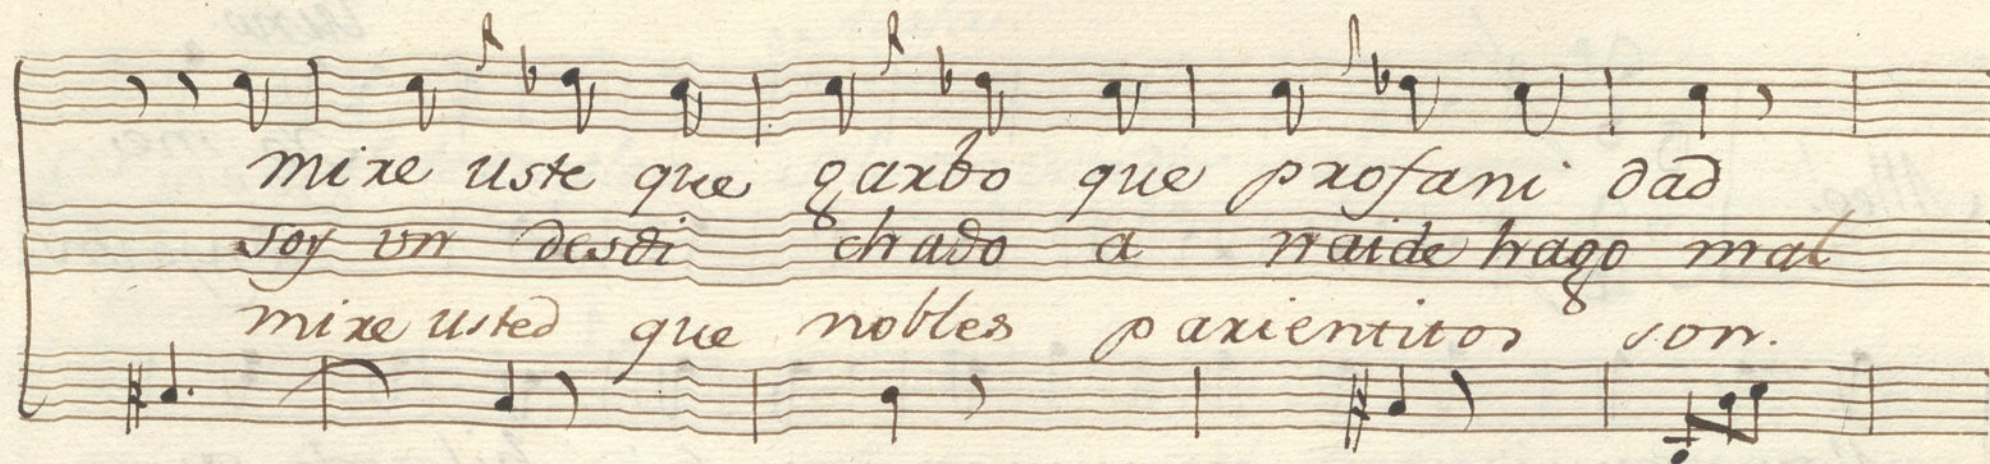 mire uste que garbo que profani dad
soy un desdi chado a naide hago mal
mire usted que nobles parientitos son.